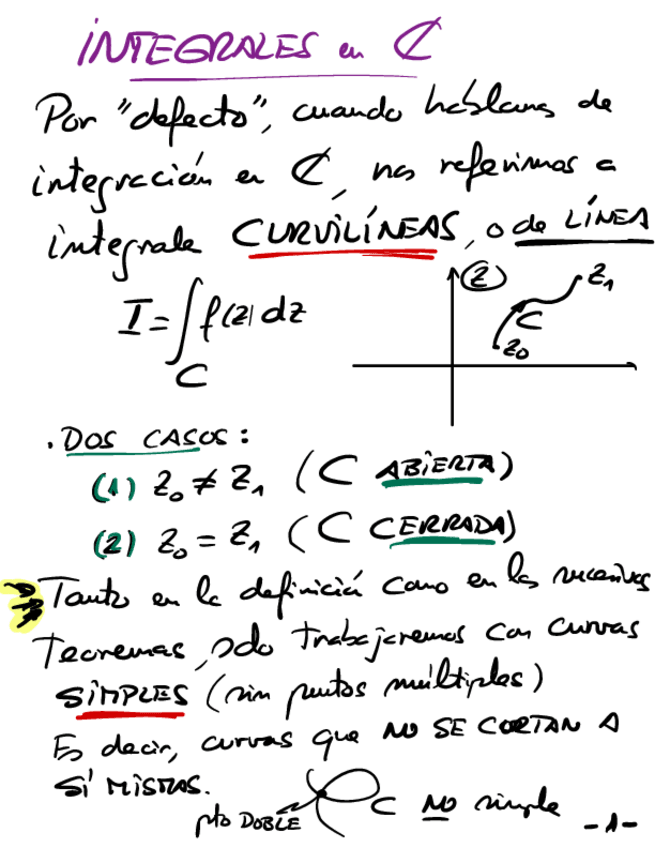 INTEGRALES en ℂ
Por "defecto", cuando hablamos de
integración en ℂ, nos referimos a
integrales CURVILÍNEAS, o de LÍNEA
I = ∫_C f(z) dz
z
z₁
C
z₀
. DOS CASOS:
(1) z₀ ≠ z₁ (C ABIERTA)
(2) z₀ = z₁ (C CERRADA)
Tanto en la definición como en los sucesivos
Teoremas, solo trabajaremos con curvas
SIMPLES (sin puntos múltiples)
Es decir, curvas que NO SE CORTAN A
SÍ MISMAS.
pto DOBLE C NO simple -1-